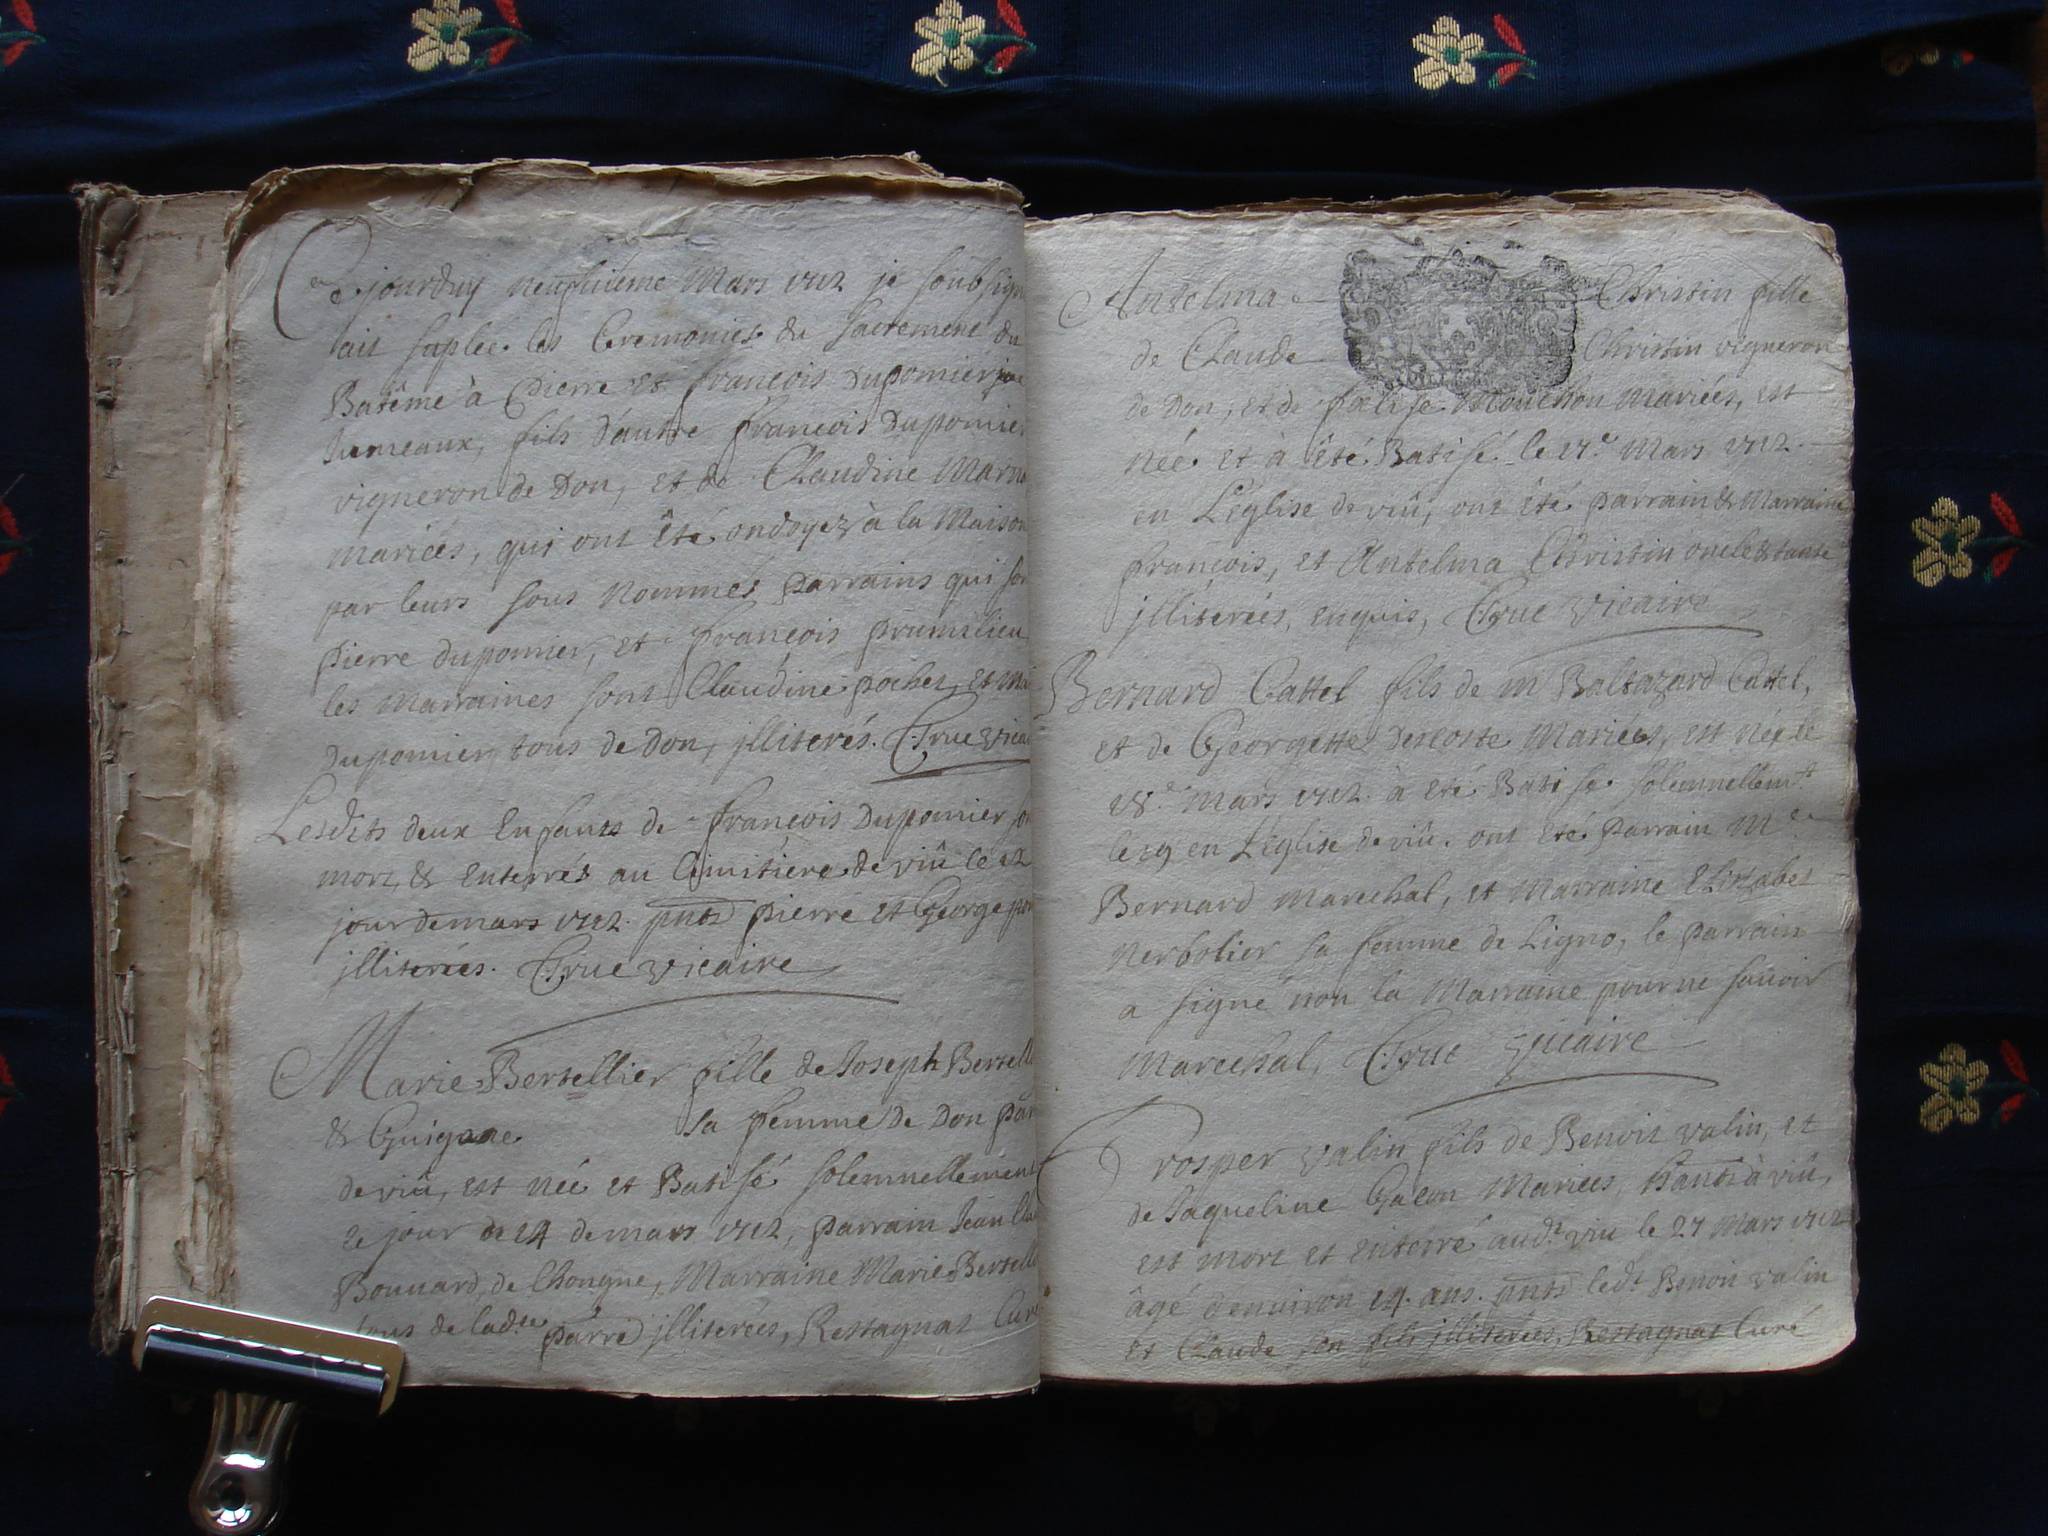 Ce jourduy neufvieme Mars 1712 je soubsigne
ait suplée les Ceremonies du Sacrement du
Batême à Pierre et François Dupomier
Jumeaux, fils d'autre François Dupomier
vigneron de Don, et de Claudine
mariées, qui ont êté ondoyez à la Maison
par leurs sous nommés parrains qui
pierre dupomier, et françois prumilieu
les Marraines sont Claudine pochet, et
Dupomier, tous de Don, jlliterés. Truc vicai
Lesdits deux Enfants de françois Dupomier
mort, & Enterrés au Cimitiere de viû le 12
jour de mars 1712. pnts pierre et George
jlliterées. Truc vicaire
Marie Bertellier fille de Joseph Bertelli
& Guigone sa femme de Don
de viû, est née et Batisé solemnellement
ce jour de 14 de mars 1712, parrain Jean
Bonnard, de Chongne, Marraine Marie Bertelli
tous de ladte parre jlliterées, Restagnat Curé
Antelma Christin fille
de Claude Christin vigneron
de Don, et de felise Mouchon Mariées, est
née et à êté Batisé le 17e Mars 1712.
en L'église de viû, ont êté parrain & Marraine
françois, et Antelma Christin oncle & tante
jlliterées, enquis, Truc Vicaire
Bernard Cattel fils de m Baltazard Cattel,
et de Georgette Descoste Mariées, est née le
18e Mars 1712. à eté Batisé solemnellemt
le 19 en L'église de viû. ont eté parrain Me
Bernard Marechal, et Marraine Elizabet
Nerbolier sa femme de Ligno, le parrain
a signé non la Marraine pour ne sçavoir
Marechal, Truc Vicaire
Prosper valin fils de Benoit valin, et
de Jaqueline Galon Mariées, à viû,
est mort et enterré audt viu le 27 Mars 1712
âgé d'enuiron 14. ans. pnts ledt Benoit valin
et Claude son fils jlliterées, Restagnat Curé